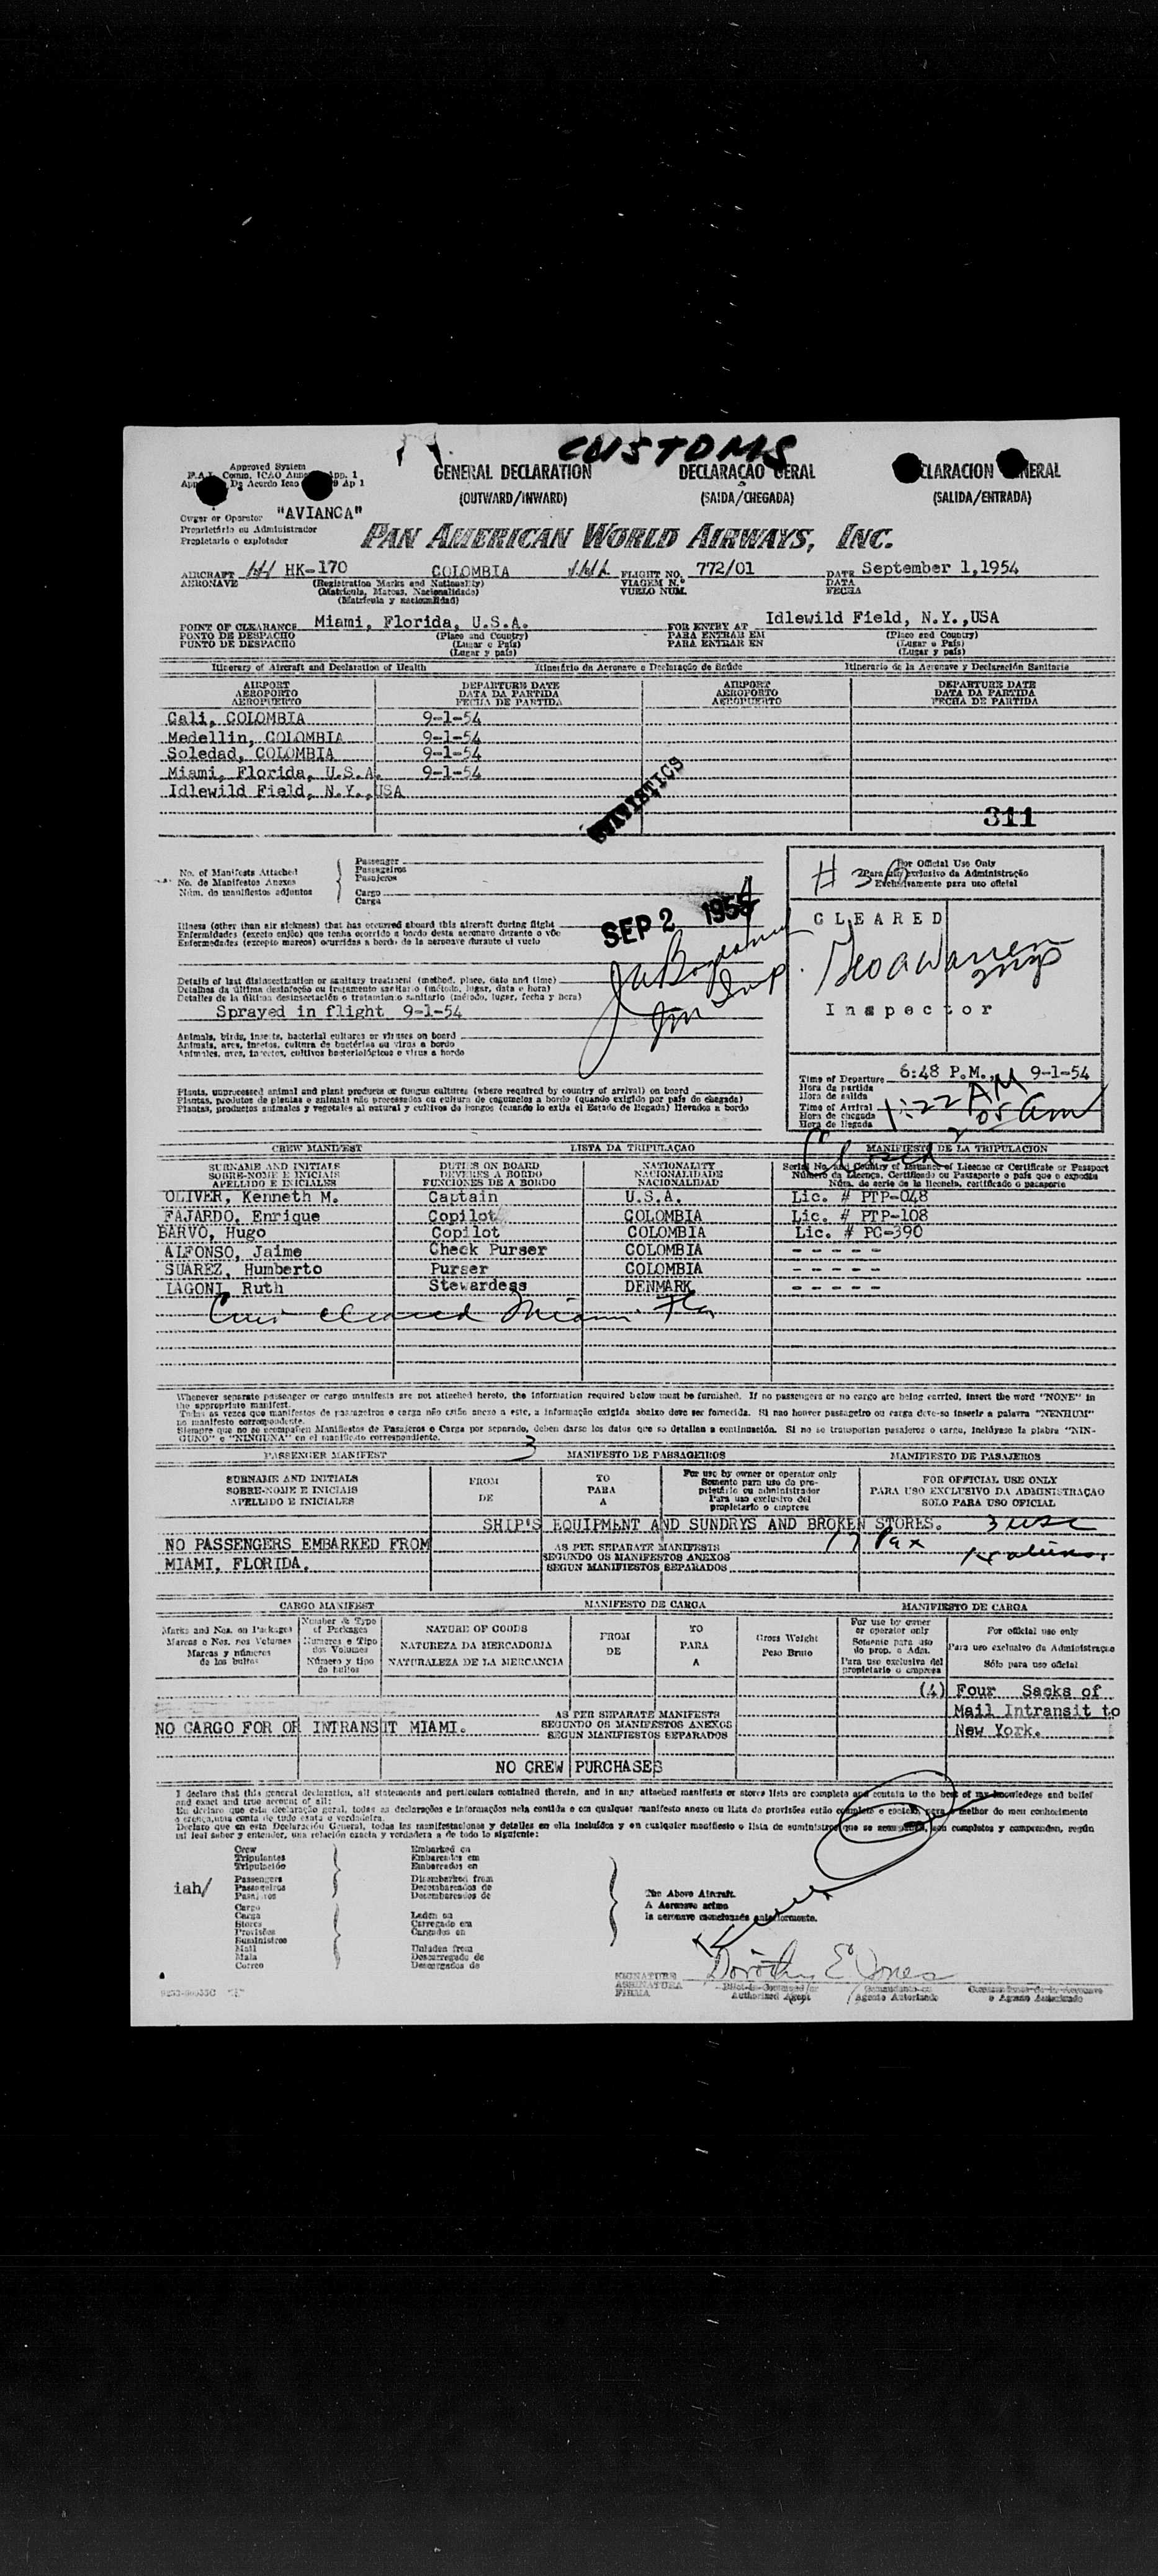 CUSTOMS
Approved System
GENERAL DECLARATION DECLARAÇÃO GERAL
(OUTWARD/INWARD) (SAIDA/CHEGADA) (SALIDA/ENTRADA)
Owner or Operator "AVIANCA"
Proprietário ou Administrador
Propietario o explotador
PAN AMERICAN WORLD AIRWAYS, INC.
AIRCRAFT HK-170 COLOMBIA FLIGHT NO. 772/01 DATE September 1,1954
AERONAVE (Registration Marks and Nationality) VIAGEM N.º DATA
(Matrícula, Marcas, Nacionalidade) VUELO NUM. FECHA
(Matrícula y nacionalidad)
POINT OF CLEARANCE Miami, Florida, U.S.A. FOR ENTRY AT Idlewild Field, N.Y.,USA
PONTO DE DESPACHO (Place and Country) PARA ENTRAR EM (Place and Country)
PUNTO DE DESPACHO (Lugar e País) PARA ENTRAR EN (Lugar e País)
(Lugar y país) (Lugar y país)
Itinerary of Aircraft and Declaration of Health Itinerário da Aeronave e Declaração de Saúde Itinerario de la Aeronave y Declaración Sanitaria
AIRPORT DEPARTURE DATE AIRPORT DEPARTURE DATE
AEROPORTO DATA DA PARTIDA AEROPORTO DATA DA PARTIDA
AEROPUERTO FECHA DE PARTIDA AEROPUERTO FECHA DE PARTIDA
Cali, COLOMBIA 9-1-54
Medellin, COLOMBIA 9-1-54
Soledad, COLOMBIA 9-1-54
Miami, Florida, U.S.A. 9-1-54
Idlewild Field, N.Y.,USA
STATISTICS
311
No. of Manifests Attached Passenger
No. de Manifestos Anexos Passageiros
Núm. de manifiestos adjuntos Pasajeros
Cargo
Carga
For Official Use Only
Para uso exclusivo da Administração
Exclusivamente para uso oficial
SEP 2 1954
CLEARED
Inspector
Illness (other than air sickness) that has occurred aboard this aircraft during flight
Enfermidades (exceto enjôo) que tenha ocorrido a bordo desta aeronave durante o vôo
Enfermedades (excepto mareos) ocurridas a bordo de la aeronave durante el vuelo
Details of last disinsectization or sanitary treatment (method, place, date and time)
Detalhes da última desinfeção ou tratamento sanitario (método, lugar, data e hora)
Detalles de la última desinsectación o tratamiento sanitario (método, lugar, fecha y hora)
Sprayed in flight 9-1-54
Animals, birds, insects, bacterial cultures or viruses on board
Animais, aves, insetos, cultura de bactérias ou virus a bordo
Animales, aves, insectos, cultivos bacteriológicos o virus a bordo
Plants, unprocessed animal and plant products or fungus cultures (where required by country of arrival) on board
Plantas, produtos de plantas e animais não processados ou cultura de cogumelos a bordo (quando exigido por país de chegada)
Plantas, productos animales y vegetales al natural y cultivos de hongos (cuando lo exija el Estado de llegada) llevados a bordo
Time of Departure 6:48 P.M., 9-1-54
Hora da partida
Hora de salida
Time of Arrival 1:22 AM
Hora da chegada
Hora de llegada
CREW MANIFEST LISTA DA TRIPULAÇAO MANIFIESTO DE LA TRIPULACION
SURNAME AND INITIALS DUTIES ON BOARD NATIONALITY Serial No. and Country of Issuance of License or Certificate or Passport
SOBRE-NOME E INICIAIS DEVERES A BORDO NACIONALIDADE Número da Licença, Certificado ou Passaporte e país que o expediu
APELLIDO E INICIALES FUNCIONES DE A BORDO NACIONALIDAD Núm. de serie de la licencia, certificado o pasaporte
OLIVER, Kenneth M. Captain U.S.A. Lic. # PTP-048
FAJARDO, Enrique Copilot COLOMBIA Lic. # PTP-108
BARVO, Hugo Copilot COLOMBIA Lic. # PC-390
ALFONSO, Jaime Check Purser COLOMBIA - - - - -
SUAREZ, Humberto Purser COLOMBIA - - - - -
LAGONI, Ruth Stewardess DENMARK - - - - -
Crew cleared Miami Fla
Whenever separate passenger or cargo manifests are not attached hereto, the information required below must be furnished. If no passengers or no cargo are being carried, insert the word "NONE" in
the appropriate manifest.
Todas as vezes que manifestos de passageiros e carga não estão anexo a este, a informação exigida abaixo deve ser fornecida. Si nao houver passageiro ou carga deve-se inserir a palavra "NENHUM"
no manifesto correspondente.
Siempre que no se acompañen Manifiestos de Pasajeros o Carga por separado, deben darse los datos que se detallan a continuación. Si no se transportan pasajeros o carga, inclúyase la plabra "NIN-
GUNO" o "NINGUNA" en el manifiesto correspondiente.
3
PASSENGER MANIFEST MANIFESTO DE PASSAGEIROS MANIFIESTO DE PASAJEROS
SURNAME AND INITIALS FROM TO For use by owner or operator only FOR OFFICIAL USE ONLY
SOBRE-NOME E INICIAIS DE PARA Somente para uso do proprietário ou administrador PARA USO EXCLUSIVO DA ADMINISTRAÇAO
APELLIDO E INICIALES A Para uso exclusivo del propietario o empresa SOLO PARA USO OFICIAL
SHIP'S EQUIPMENT AND SUNDRYS AND BROKEN STORES. 3 usc
NO PASSENGERS EMBARKED FROM AS PER SEPARATE MANIFESTS 17 Pax
MIAMI, FLORIDA. SEGUNDO OS MANIFESTOS ANEXOS
SEGUN MANIFIESTOS SEPARADOS
CARGO MANIFEST MANIFESTO DE CARGA MANIFIESTO DE CARGA
Marks and Nos. on Packages Number & Type of Packages NATURE OF GOODS FROM TO Gross Weight For use by owner or operator only For official use only
Marcas e Nos. nos Volumes Numeros e Tipo dos Volumes NATUREZA DA MERCADORIA DE PARA Peso Bruto Somente para uso do prop. o Adm. Para uso exclusivo da Administraçao
Marcas y números de los bultos Número y tipo de bultos NATURALEZA DE LA MERCANCIA A Para uso exclusivo del propietario o empresa Sólo para uso oficial
(4) Four Sacks of
Mail Intransit to
New York.
NO CARGO FOR OR INTRANSIT MIAMI. AS PER SEPARATE MANIFESTS
SEGUNDO OS MANIFESTOS ANEXOS
SEGUN MANIFIESTOS SEPARADOS
NO CREW PURCHASES
I declare that this general declaration, all statements and particulars contained therein, and in any attached manifests or stores lists are complete and contain to the best of my knowledege and belief
and exact and true account of all:
Crew Embarked on
Tripulantes Embarcados em
Tripulación Embarcados en
Passengers Disembarked from
Passageiros Desembarcados de
Pasajeros Desembarcados de
iah/
Cargo
Carga Laden on
Stores Carregado em
Provisões Cargados en
Suministros
Mail Unladen from
Mala Descarregado de
Correo Descargados de
The Above Aircraft.
A Aeronave acima
la aeronave mencionada anteriormente.
Dorothy E Jones
SIGNATURE
ASSINATURA
FIRMA
Authorized Agent Agente Autorizado o Agente Autorizado